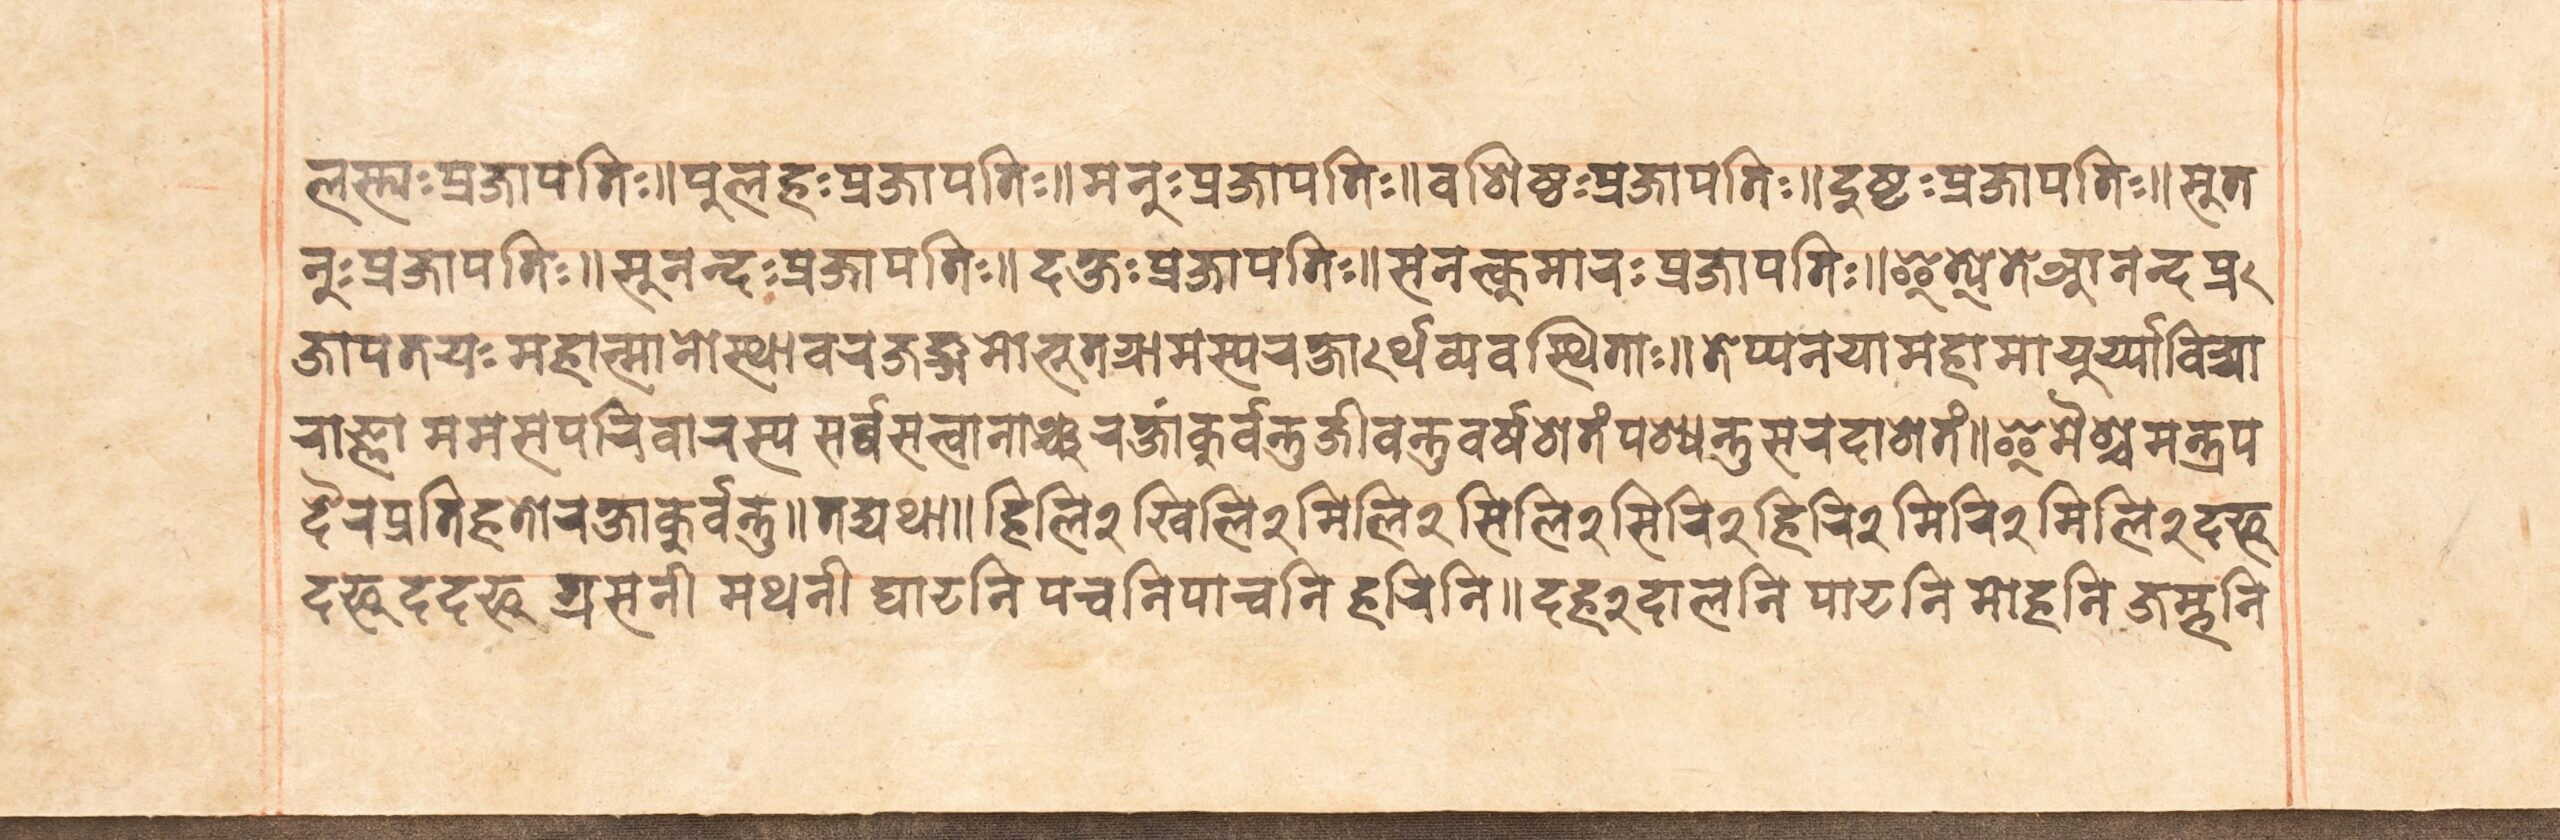 लस्त्यः प्रजापतिः॥ पुलहः प्रजापतिः॥ मनुः प्रजापतिः॥ वशिष्ठः प्रजापतिः॥ दुष्टः प्रजापतिः॥ सुत
नुः प्रजापतिः॥ सुनन्दः प्रजापतिः॥ दक्षः प्रजापतिः॥ सनत्कुमारः प्रजापतिः॥ इत्येते आनन्द प्र
जापतयः महात्मानो स्थावरजङ्गमो भूतग्रामस्य रक्षाऽर्थ व्यवस्थिताः॥ तेप्यनया महामायुर्य्या विद्या
राज्ञा मम सपरिवारस्य सर्व्वसत्वानाञ्च रक्षां कुर्वन्तु जीवन्तु वर्षशतं पश्यन्तु सरदाशतं॥ इमैश्च मन्त्रप
दैरप्रतिहतो रक्षा कुर्वन्तु॥ तद्यथा॥ हिलि२ खिलि२ मिलि२ सिलि२ सिरि२ हिरि२ मिरि२ मिलि२ दफु
दफु ददफु ग्रसनी मथनी घाटनि पचनि पाचनि हरिनि॥ दह२ दालनि पाटनि मोहनि जम्भनि